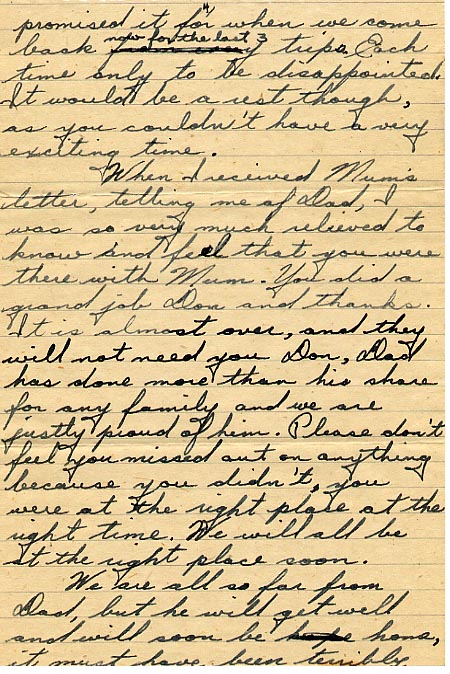 promised it for when we come
back now for the last 3 trips. Each
time only to be disappointed.
It would be a rest though,
as you couldn't have a very
exciting time.
When I received Mum's
letter, telling me of Dad, I
was so very much relieved to
know and feel that you were
there with Mum. You did a
grand job Don and thanks.
It is almost over, and they
will not need you Don, Dad
has done more than his share
for any family and we are
justly proud of him. Please don't
feel you missed out on anything
because you didn't, you
were at the right place at the
right time. We will all be
at the right place soon.
We are all so far from
Dad, but he will get well
and will soon be home,
it must have been terribly